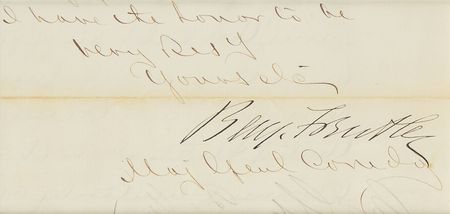 I have the honor to be
Very Resy
Yours &c
Benj. F Butler
Maj Genl Comdg